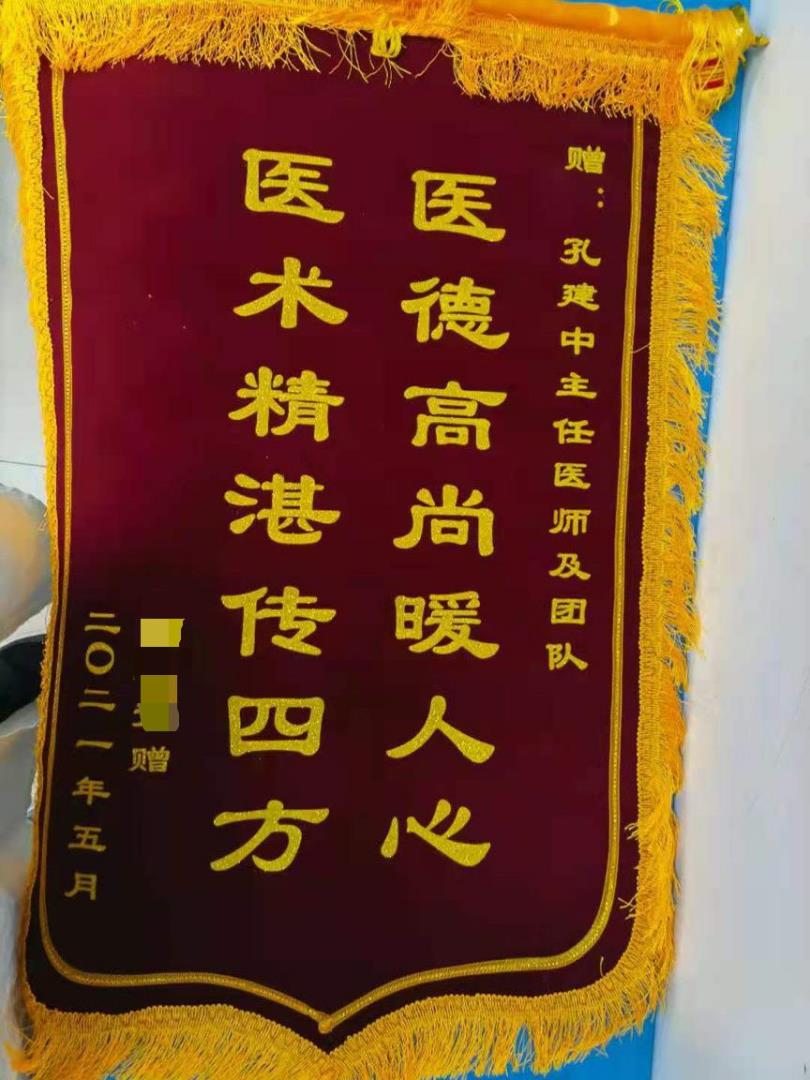 赠：孔建中主任医师及团队
医德高尚暖人心
医术精湛传四方
赠
二〇二一年五月